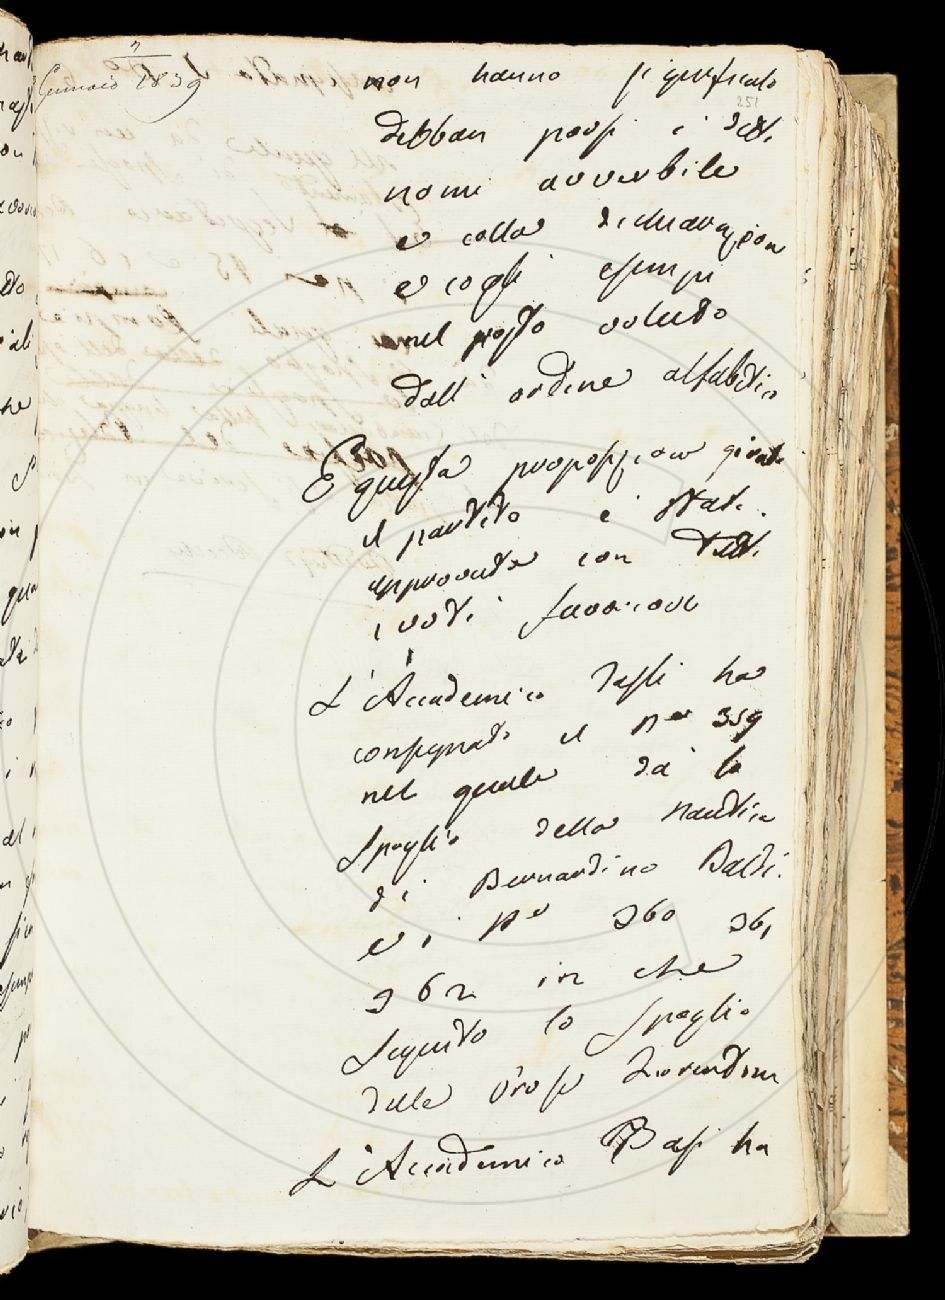 Gennaio 1839
non hanno significato
251
debban porsi i detti
nomi avverbiale
e colla dichiarazion
e cogli esempi
nel posto voluto
dall' ordine alfabetico
E questa proposizione girato
il partito è stata
approvata con tutti
i voti favorevoli
L'Accademico Tassi ha
consegnato il no 359
nel quale dà lo
Spoglio della Nautica
di Bernardino Baldi.
e i ni 360 361
362 in che
seguita lo spoglio
delle Prose Fiorentine
L'Accademico Basi ha